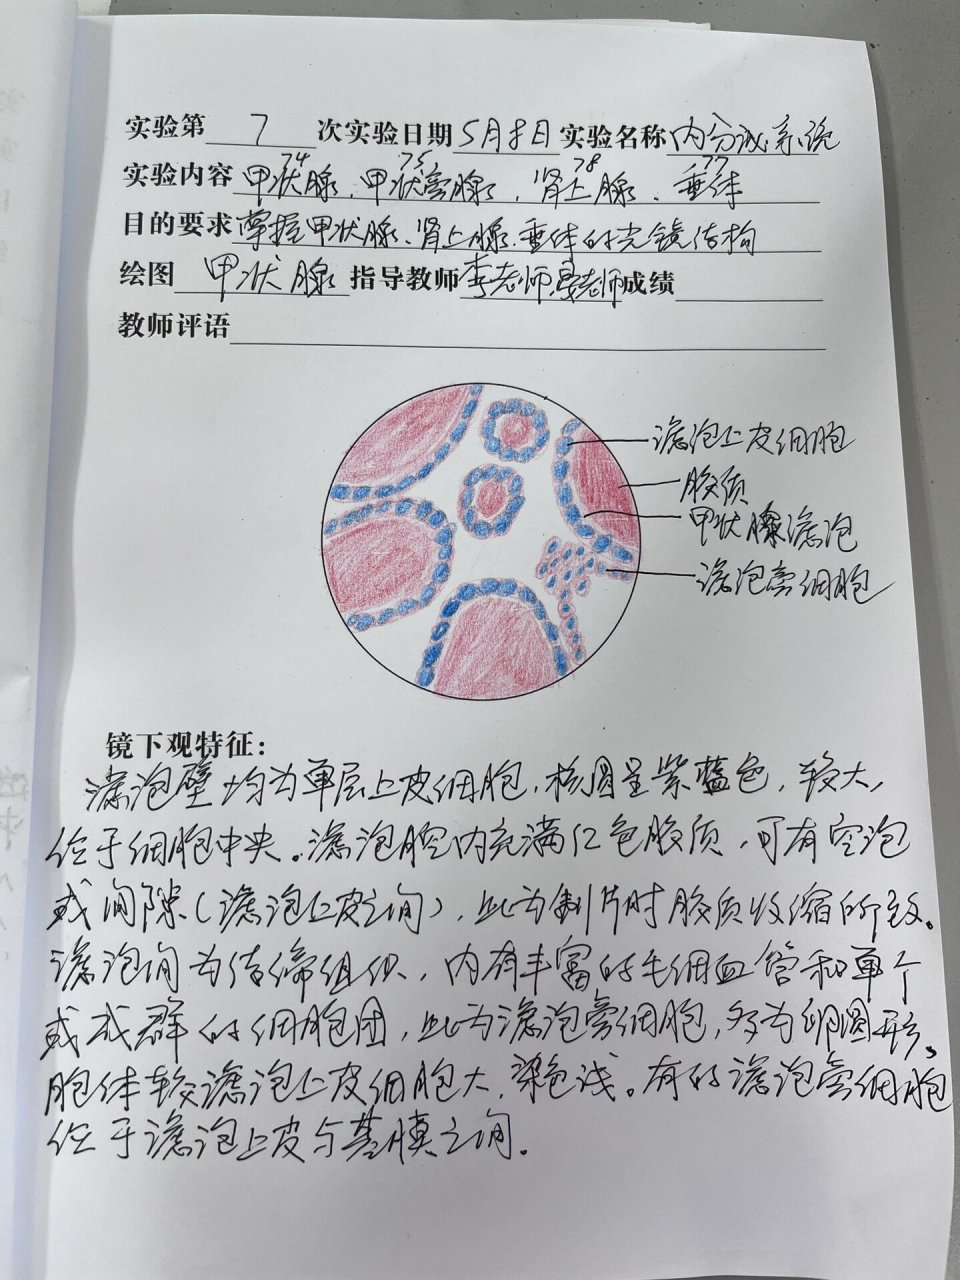 实验第 7 次实验日期 5月8日 实验名称 内分泌系统
74 75 78 77
实验内容 甲状腺、甲状旁腺、肾上腺、垂体
目的要求 掌握甲状腺、肾上腺、垂体的光镜结构
绘图 甲状腺 指导教师 李老师 老师 成绩
教师评语
滤泡上皮细胞
胶质
甲状腺滤泡
滤泡旁细胞
镜下观特征：
滤泡壁均为单层上皮细胞，核圆呈紫蓝色，较大，
位于细胞中央。滤泡腔内充满红色胶质，可有空泡
或间隙（滤泡上皮之间），此为制片时胶质收缩所致。
滤泡间为结缔组织，内有丰富的毛细血管和单个
或成群的细胞团，此为滤泡旁细胞，多为卵圆形。
胞体较滤泡上皮细胞大，染色浅。有的滤泡旁细胞
位于滤泡上皮与基膜之间。